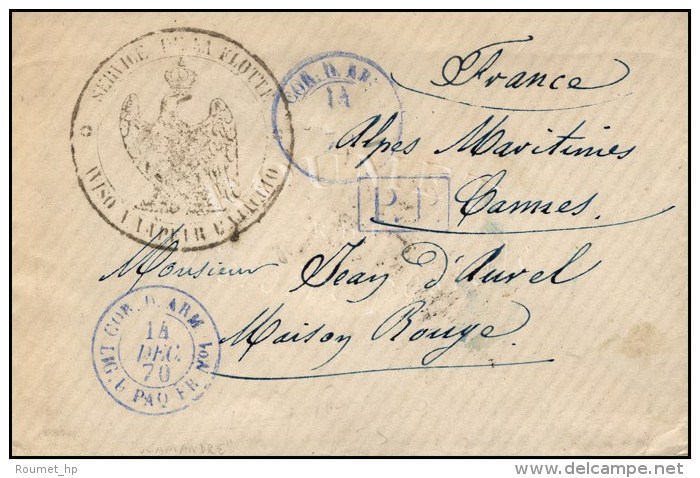 SERVICE DE LA FLOTTE
AVISO A VAPEUR
COR. D. ARM
14
France
Alpes Maritimes
P.P.
Cannes.
Monsieur Jean d'Aurel
Maison Rouge.
COR. D. ARM
LIG. PAQ FR No1
14
DEC.
70
Roumet_hp
www.delcampe.net